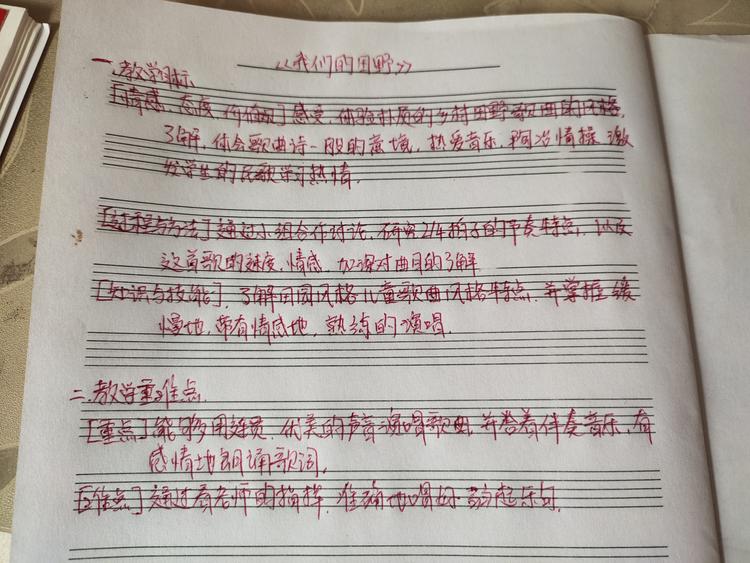 《我们的田野》
一.教学目标
[情感、态度、价值观] 感受、体验朴质的乡村田野歌曲的风格,
了解,体会歌曲诗一般的意境,热爱音乐,陶冶情操,激
发学生的民歌学习热情.
[过程与方法] 通过小组合作讨论,研究2/4拍子的节奏特点,以及
这首歌的速度、情感,加深对曲目的了解
[知识与技能],了解田园风格儿童歌曲风格特点,并掌握缓
慢地,带有情感地,熟练的演唱.
二.教学重难点
[重点] 能够用连贯、优美的声音演唱歌曲,并合着伴奏音乐,有
感情地朗诵歌词.
[难点] 通过看老师的指挥,准确地唱好弱起乐句.